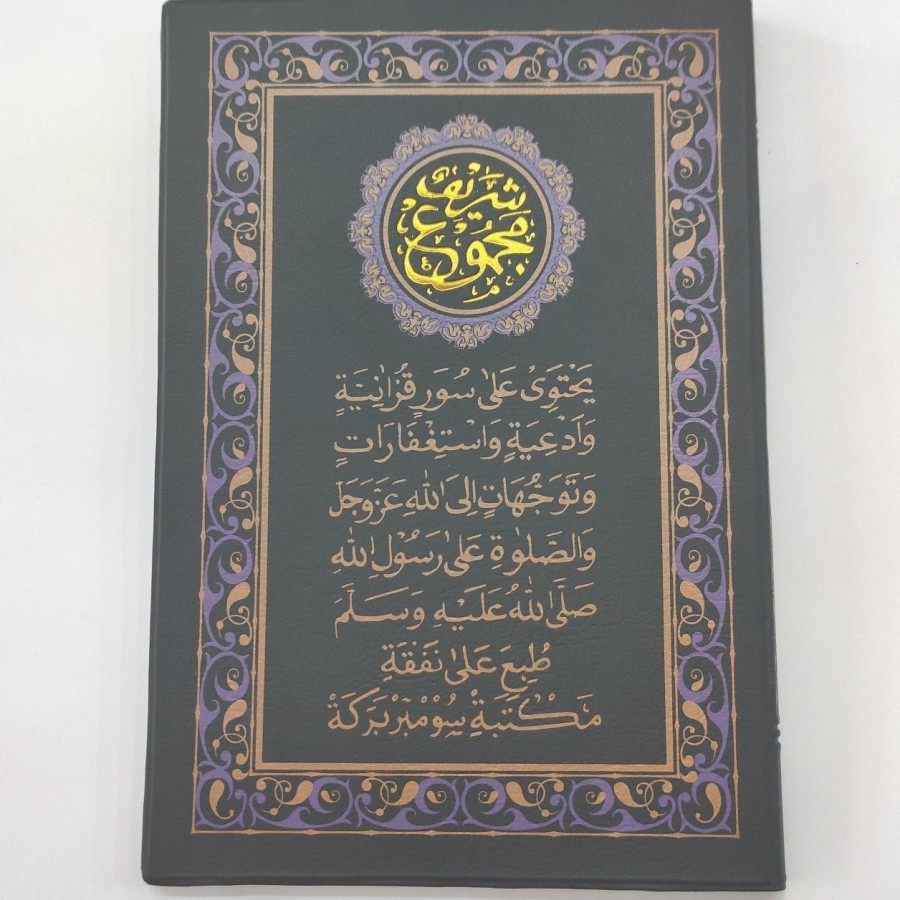 مجموع شريف
يَحْتَوِىْ عَلٰى سُوَرٍ قُرْاٰنِيَّةٍ
وَاَدْعِيَةٍ وَاسْتِغْفَارَاتٍ
وَتَوَجُّهَاتٍ اِلَى اللّٰهِ عَزَّوَجَلَّ
وَالصَّلٰوةِ عَلٰى رَسُوْلِ اللّٰهِ
صَلَّى اللّٰهُ عَلَيْهِ وَسَلَّمَ
طُبِعَ عَلٰى نَفَقَةِ
مَكْتَبَةِ سُوْمْبَرْبَرْكَةْ